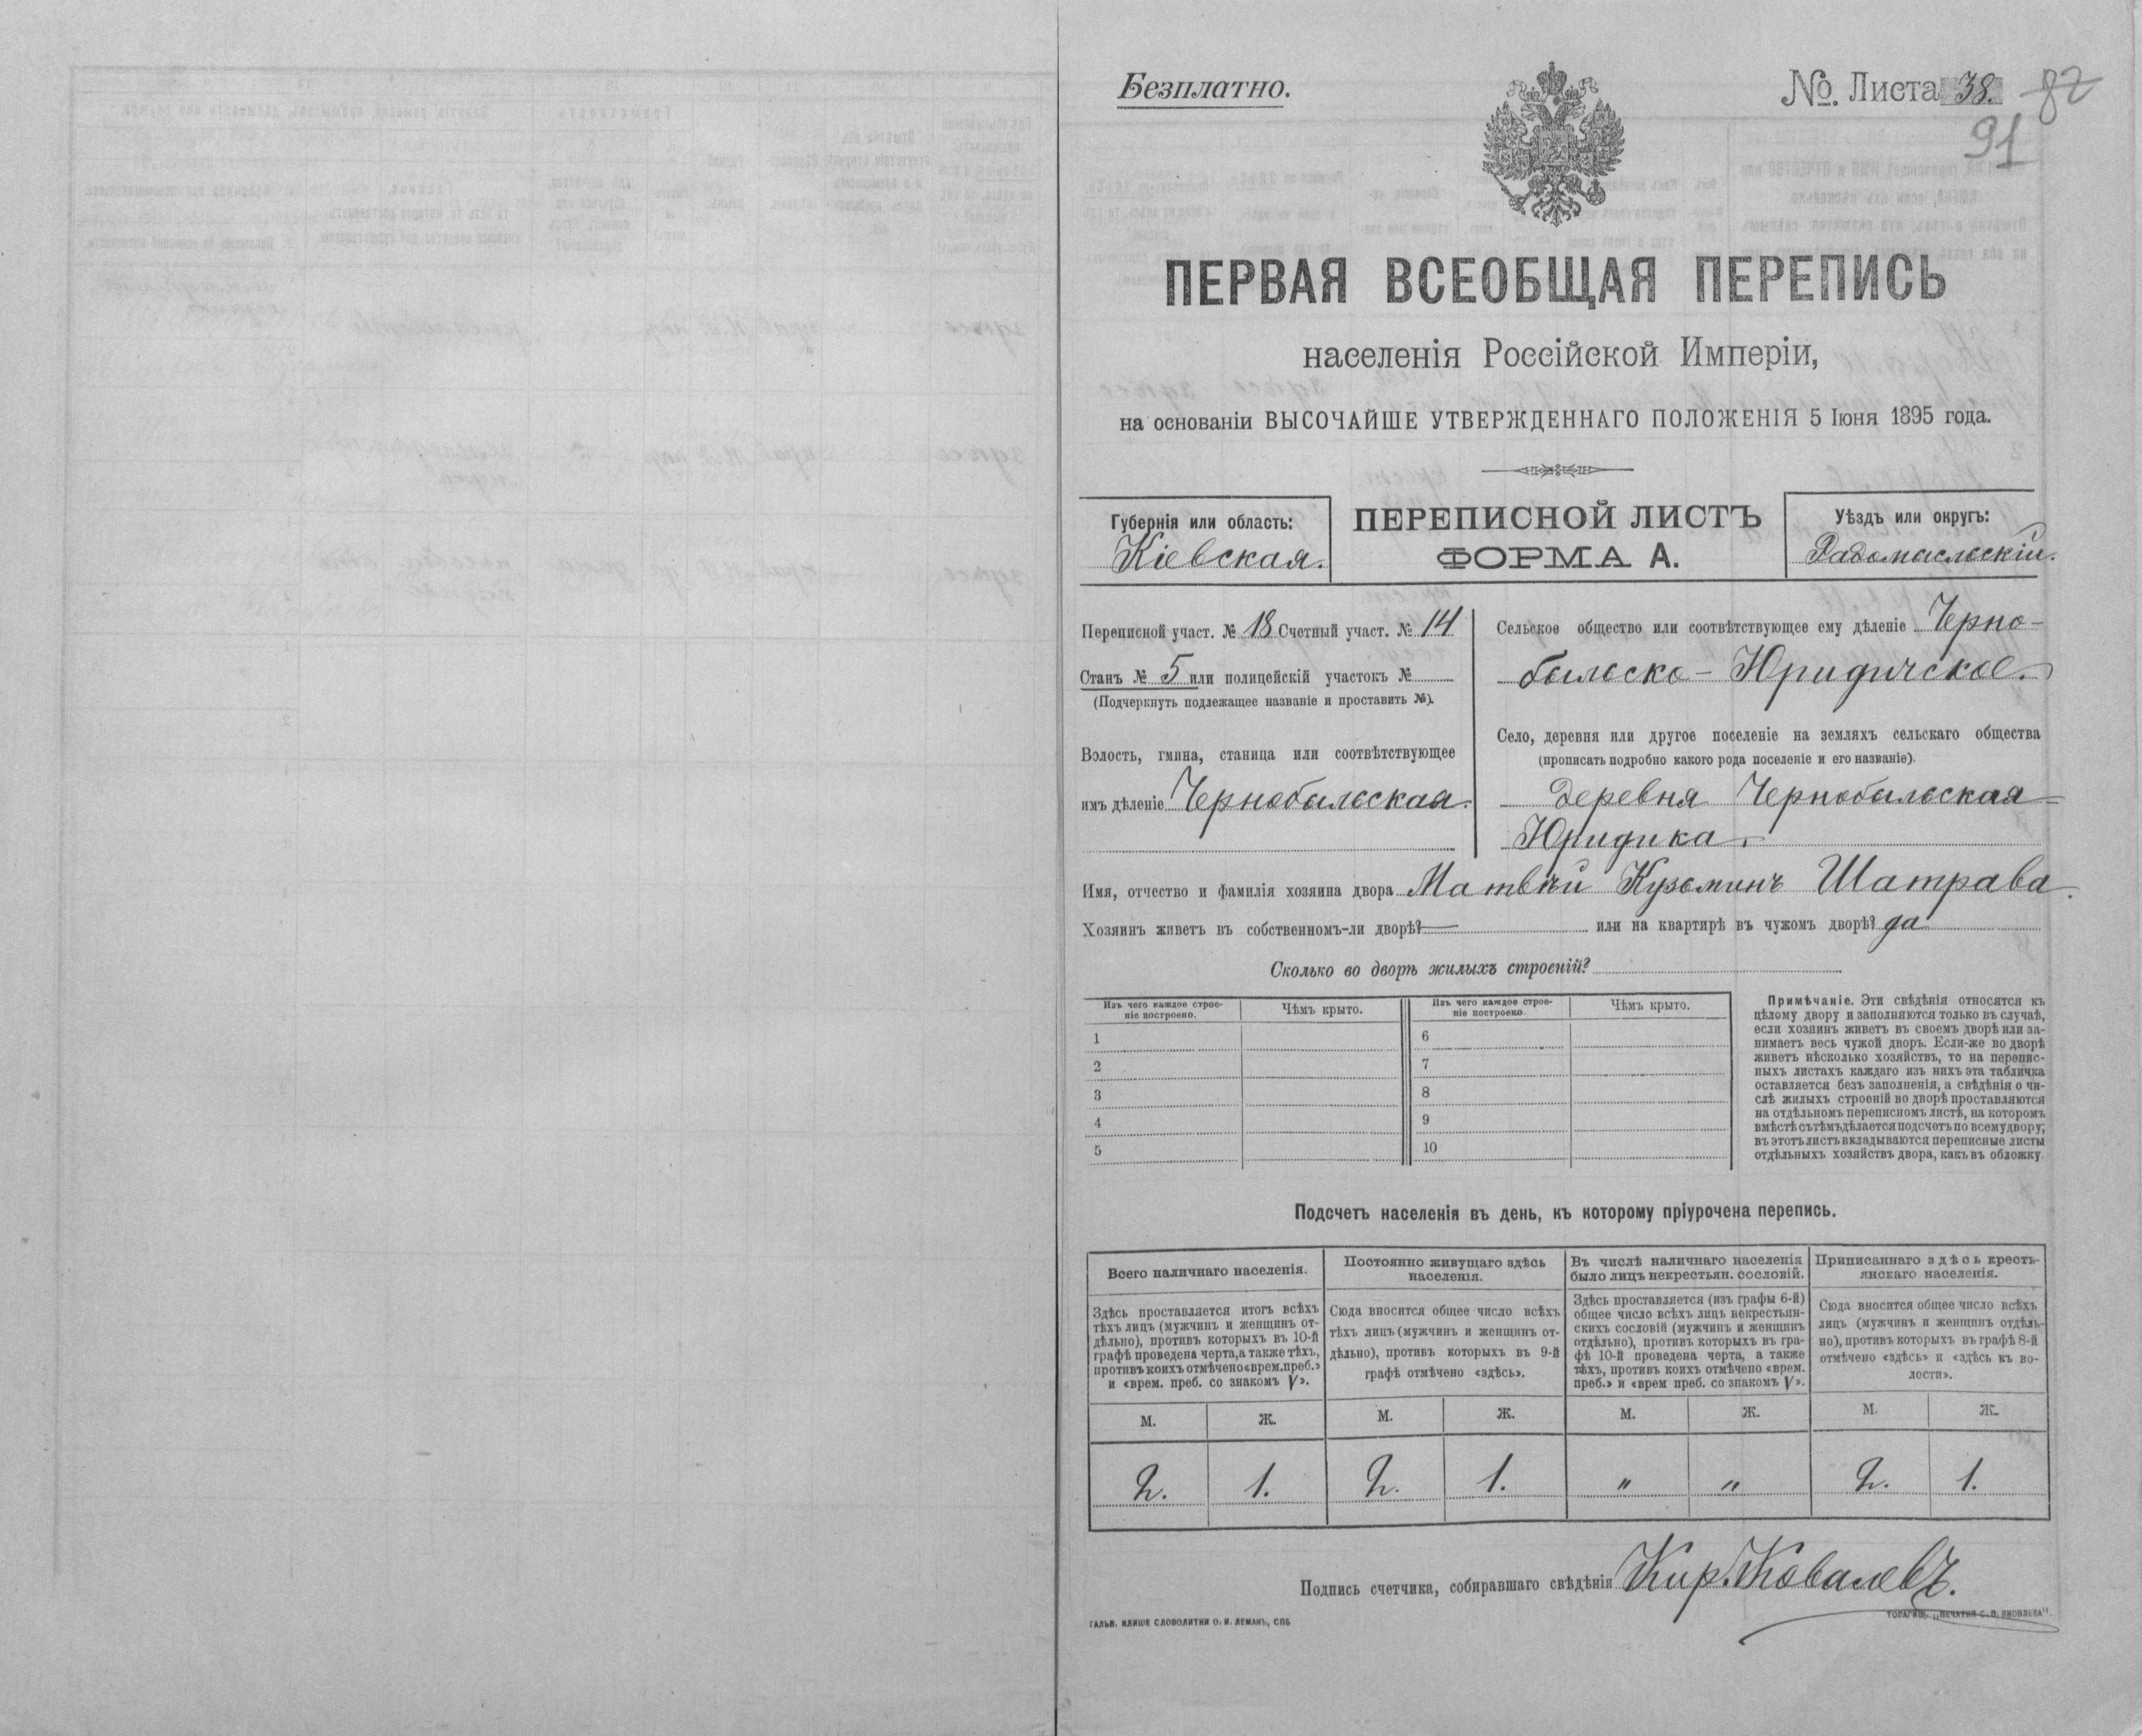 Безплатно.
№ Листа 38. 82
91
ПЕРВАЯ ВСЕОБЩАЯ ПЕРЕПИСЬ
населенія Россійской Имперіи,
на основаніи ВЫСОЧАЙШЕ УТВЕРЖДЕННАГО ПОЛОЖЕНІЯ 5 Іюня 1895 года.
Губернія или область:
Кіевская.
ПЕРЕПИСНОЙ ЛИСТЪ
ФОРМА А.
Уѣздъ или округъ:
Радомысльскій.
Переписной участ. № 18 Счетный участ. № 14
Станъ № 5 или полицейскій участокъ №
(Подчеркнуть подлежащее названіе и проставить №).
Волость, гмина, станица или соотвѣтствующее
имъ дѣленіе Чернобыльская.
Сельское общество или соотвѣтствующее ему дѣленіе Черно-
быльско-Юридичское.
Село, деревня или другое поселеніе на земляхъ сельскаго общества
(прописать подробно какого рода поселеніе и его названіе).
Деревня Чернобыльская-
Юридика.
Имя, отчество и фамилія хозяина двора Матвѣй Кузьминъ Шатрава.
Хозяинъ живетъ въ собственномъ-ли дворѣ? — или на квартирѣ въ чужомъ дворѣ? да
Сколько во дворѣ жилыхъ строеній?
Изъ чего каждое строе-
ніе построено.
Чѣмъ крыто.
Изъ чего каждое строе-
ніе построено.
Чѣмъ крыто.
1 6
2 7
3 8
4 9
5 10
Примѣчаніе. Эти свѣдѣнія относятся къ
цѣлому двору и заполняются только въ случаѣ,
если хозяинъ живетъ въ своемъ дворѣ или за-
нимаетъ весь чужой дворъ. Если-же во дворѣ
живетъ нѣсколько хозяйствъ, то на перепис-
ныхъ листахъ каждаго изъ нихъ эта табличка
оставляется безъ заполненія, а свѣдѣнія о чи-
слѣ жилыхъ строеній во дворѣ проставляются
на отдѣльномъ переписномъ листѣ, на которомъ
вмѣстѣ съ тѣмъ дѣлается подсчетъ по всему двору;
въ этотъ листъ вкладываются переписные листы
отдѣльныхъ хозяйствъ двора, какъ въ обложку.
Подсчетъ населенія въ день, къ которому пріурочена перепись.
Всего наличнаго населенія.
Здѣсь проставляется итогъ всѣхъ
тѣхъ лицъ (мужчинъ и женщинъ от-
дѣльно), противъ которыхъ въ 10-й
графѣ проведена черта, а также тѣхъ,
противъ коихъ отмѣчено «врем. преб.»
и «врем. преб. со знакомъ V».
Постоянно живущаго здѣсь
населенія.
Сюда вносится общее число всѣхъ
тѣхъ лицъ (мужчинъ и женщинъ от-
дѣльно), противъ которыхъ въ 9-й
графѣ отмѣчено «здѣсь».
Въ числѣ наличнаго населенія
было лицъ некрестьян. сословій.
Здѣсь проставляется (изъ графы 6-й)
общее число всѣхъ лицъ некрестьян-
скихъ сословій (мужчинъ и женщинъ
отдѣльно), противъ которыхъ въ гра-
фѣ 10-й проведена черта, а также
тѣхъ, противъ коихъ отмѣчено «врем.
преб.» и «врем преб. со знакомъ V».
Приписаннаго здѣсь кресть-
янскаго населенія.
Сюда вносится общее число всѣхъ
лицъ (мужчинъ и женщинъ отдѣль-
но), противъ которыхъ въ графѣ 8-й
отмѣчено «здѣсь» и «здѣсь къ во-
лости».
М. Ж. М. Ж. М. Ж. М. Ж.
2. 1. 2. 1. " " 2. 1.
Подпись счетчика, собиравшаго свѣдѣнія Кир. Ковалевъ.
ГАЛЬВ. КЛИШЕ СЛОВОЛИТНИ О. И. ЛЕМАНЪ, СПБ
ТОВАРИЩ. „ПЕЧАТНЯ С. П. ЯКОВЛЕВА".